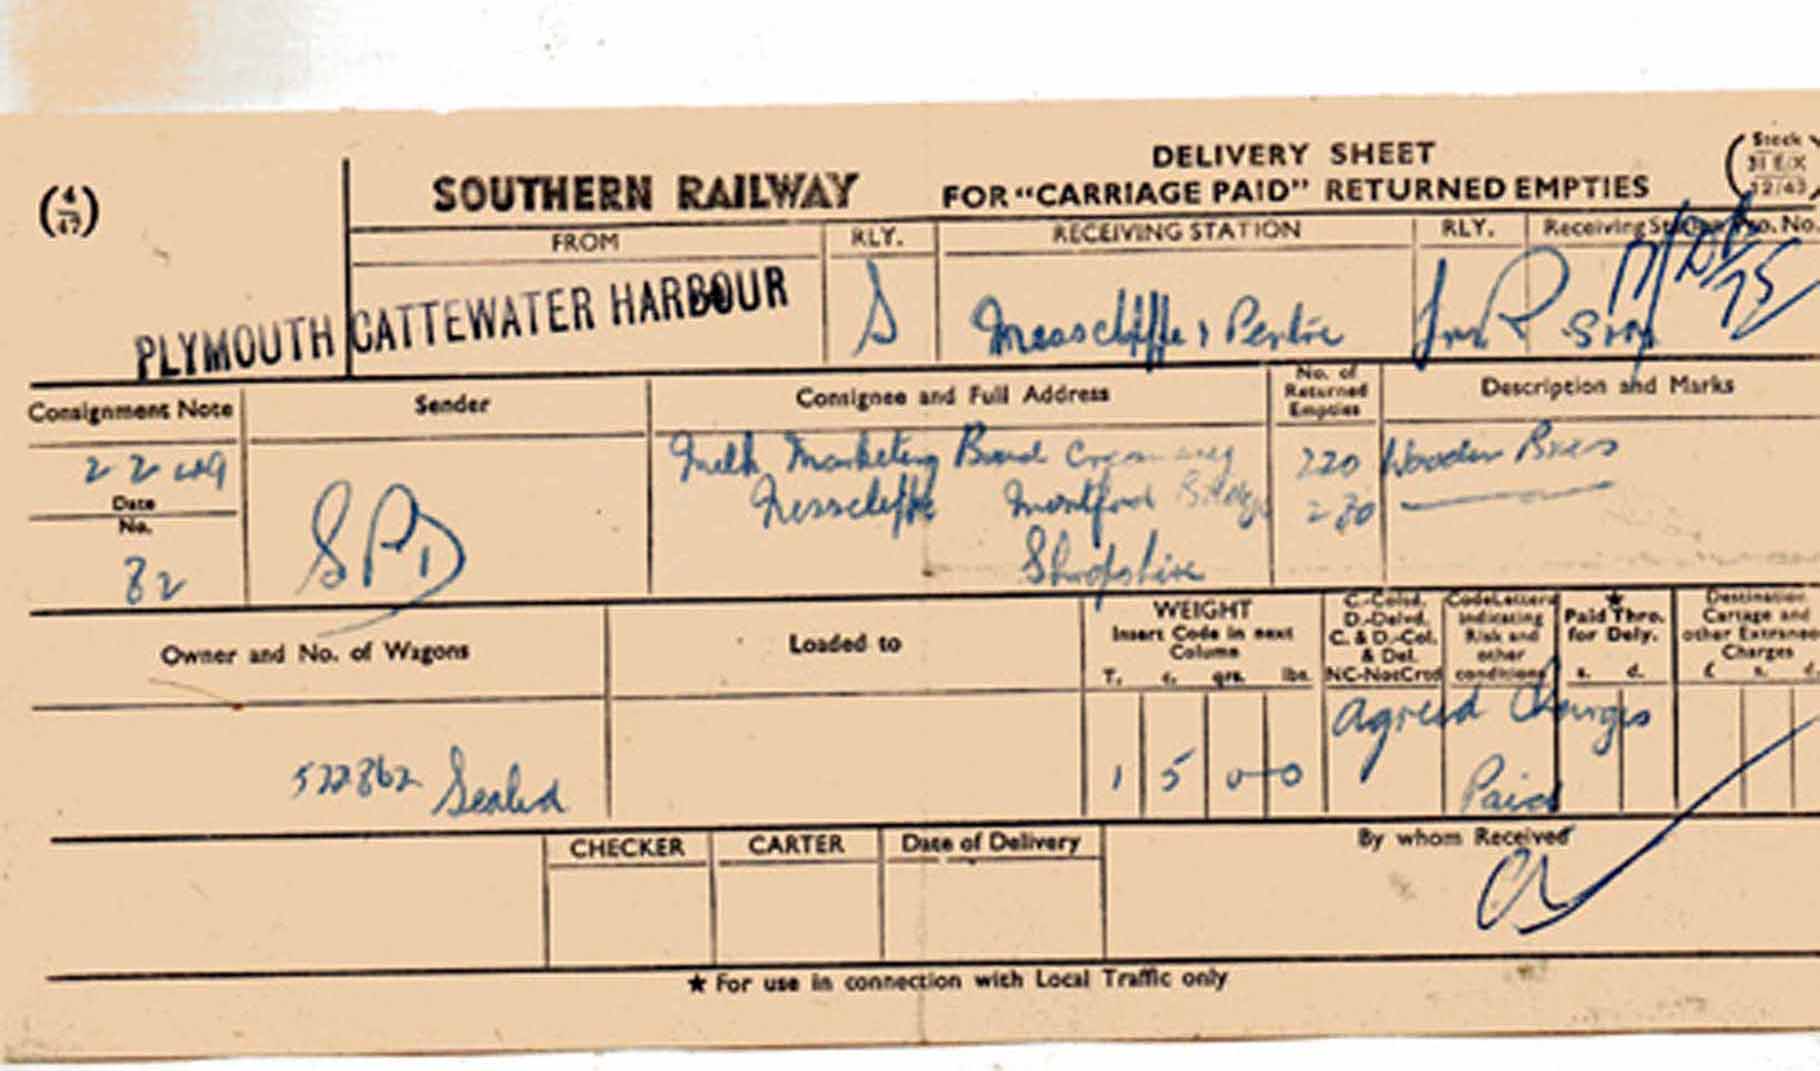 (4/47)
SOUTHERN RAILWAY
DELIVERY SHEET
FOR "CARRIAGE PAID" RETURNED EMPTIES
(Stock
31 E/X
12/43
FROM RLY. RECEIVING STATION RLY. Receiving Station Pro. No.
PLYMOUTH CATTEWATER HARBOUR S & Pentre
Consignment Note Sender Consignee and Full Address No. of Returned Empties Description and Marks
22
Date
No.
82
SPD
Milk Marketing Board Creamery
Nesscliffe Montford Bridge
Shropshire
220 Wooden
Owner and No. of Wagons Loaded to
WEIGHT
Insert Code in next
Column
T. c. qrs. lbs.
C.-Colsd.
D.-Delvd.
C. & D.-Col.
& Del.
NC-NotCrtd
Code Letters
indicating
Risk and
other
conditions
★
Paid Thro.
for Dely.
s. d.
Destination
Cartage and
other Extraneous
Charges
£ s. d.
522862 Sealed 1 5 0 0 Agreed Charges
Paid
CHECKER CARTER Date of Delivery By whom Received
★ For use in connection with Local Traffic only